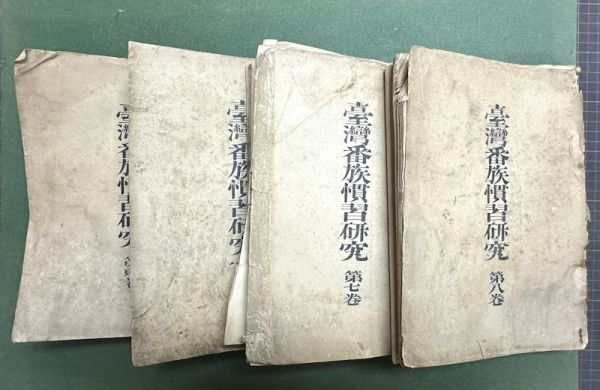 臺灣番族慣習研究
第八卷
臺灣番族慣習研究
第七卷
臺灣番族慣習研究
臺灣番族慣習研究